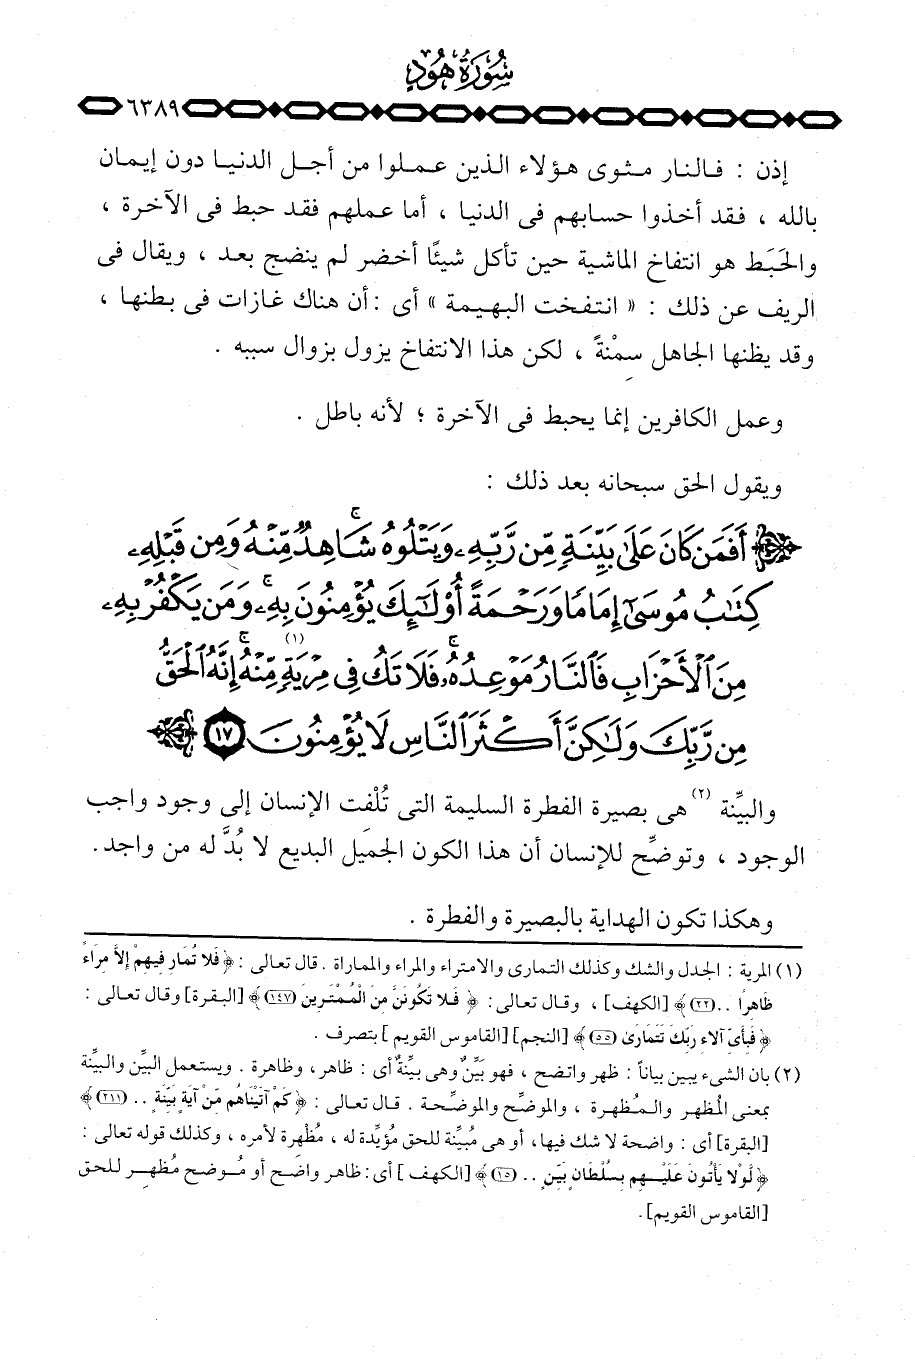 سُورَةُ هُودٍ
٦٣٨٩
إذن : فالنار مثوى هؤلاء الذين عملوا من أجل الدنيا دون إيمان
بالله ، فقد أخذوا حسابهم فى الدنيا ، أما عملهم فقد حبط فى الآخرة ،
والحَبَط هو انتفاخ الماشية حين تأكل شيئًا أخضر لم ينضج بعد ، ويقال فى
الريف عن ذلك : « انتفخت البهيمة » أى : أن هناك غازات فى بطنها ،
وقد يظنها الجاهل سِمْنةً ، لكن هذا الانتفاخ يزول بزوال سببه .
وعمل الكافرين إنما يحبط فى الآخرة ؛ لأنه باطل .
ويقول الحق سبحانه بعد ذلك :
أَفَمَن كَانَ عَلَىٰ بَيِّنَةٍ مِّن رَّبِّهِۦ وَيَتْلُوهُ شَاهِدٌ مِّنْهُ وَمِن قَبْلِهِۦ
كِتَٰبُ مُوسَىٰٓ إِمَامًا وَرَحْمَةً أُوْلَٰٓئِكَ يُؤْمِنُونَ بِهِۦۚ وَمَن يَكْفُرْ بِهِۦ
مِنَ ٱلْأَحْزَابِ فَٱلنَّارُ مَوْعِدُهُۥۚ فَلَا تَكُ فِى مِرْيَةٍ (١) مِّنْهُۚ إِنَّهُ ٱلْحَقُّ
مِن رَّبِّكَ وَلَٰكِنَّ أَكْثَرَ ٱلنَّاسِ لَا يُؤْمِنُونَ ١٧
والبيِّنة (٢) هى بصيرة الفطرة السليمة التى تُلْفِت الإنسان إلى وجود واجب
الوجود ، وتوضِّح للإنسان أن هذا الكون الجميل البديع لا بُدَّ له من واجد .
وهكذا تكون الهداية بالبصيرة والفطرة .
(١) المرية : الجدل والشك وكذلك التمارى والامتراء والمراء والمماراة . قال تعالى : ﴿ فَلا تُمَارِ فِيهِمْ إِلاَّ مِرَاءً
ظَاهِرًا .. (٢٢) ﴾ [الكهف] ، وقال تعالى : ﴿ فَلا تَكُونَنَّ مِنَ الْمُمْتَرِينَ (١٤٧) ﴾ [البقرة] وقال تعالى :
﴿ فَبِأَىِّ آلاءِ رَبِّكَ تَتَمَارَىٰ (٥٥) ﴾ [النجم] [القاموس القويم] بتصرف .
(٢) بان الشىء يبين بياناً : ظهر واتضح ، فهو بَيِّنٌ وهى بيِّنةٌ أى : ظاهر ، وظاهرة . ويستعمل البيِّن والبيِّنة
بمعنى المُظهر والمُظهرة ، والموضِّح والموضِّحة . قال تعالى : ﴿ كَمْ آتَيْنَاهُم مِّنْ آيَةٍ بَيِّنَةٍ .. (٢١١) ﴾
[البقرة] أى : واضحة لا شك فيها، أو هى مُبيِّنة للحق مؤيِّدة له ، مُظْهِرة لأمره ، وكذلك قوله تعالى :
﴿ لَوْلا يَأْتُونَ عَلَيْهِم بِسُلْطَانٍ بَيِّنٍ .. (١٥) ﴾ [الكهف] أى : ظاهر واضح أو مُوضح مُظهر للحق
[القاموس القويم] .